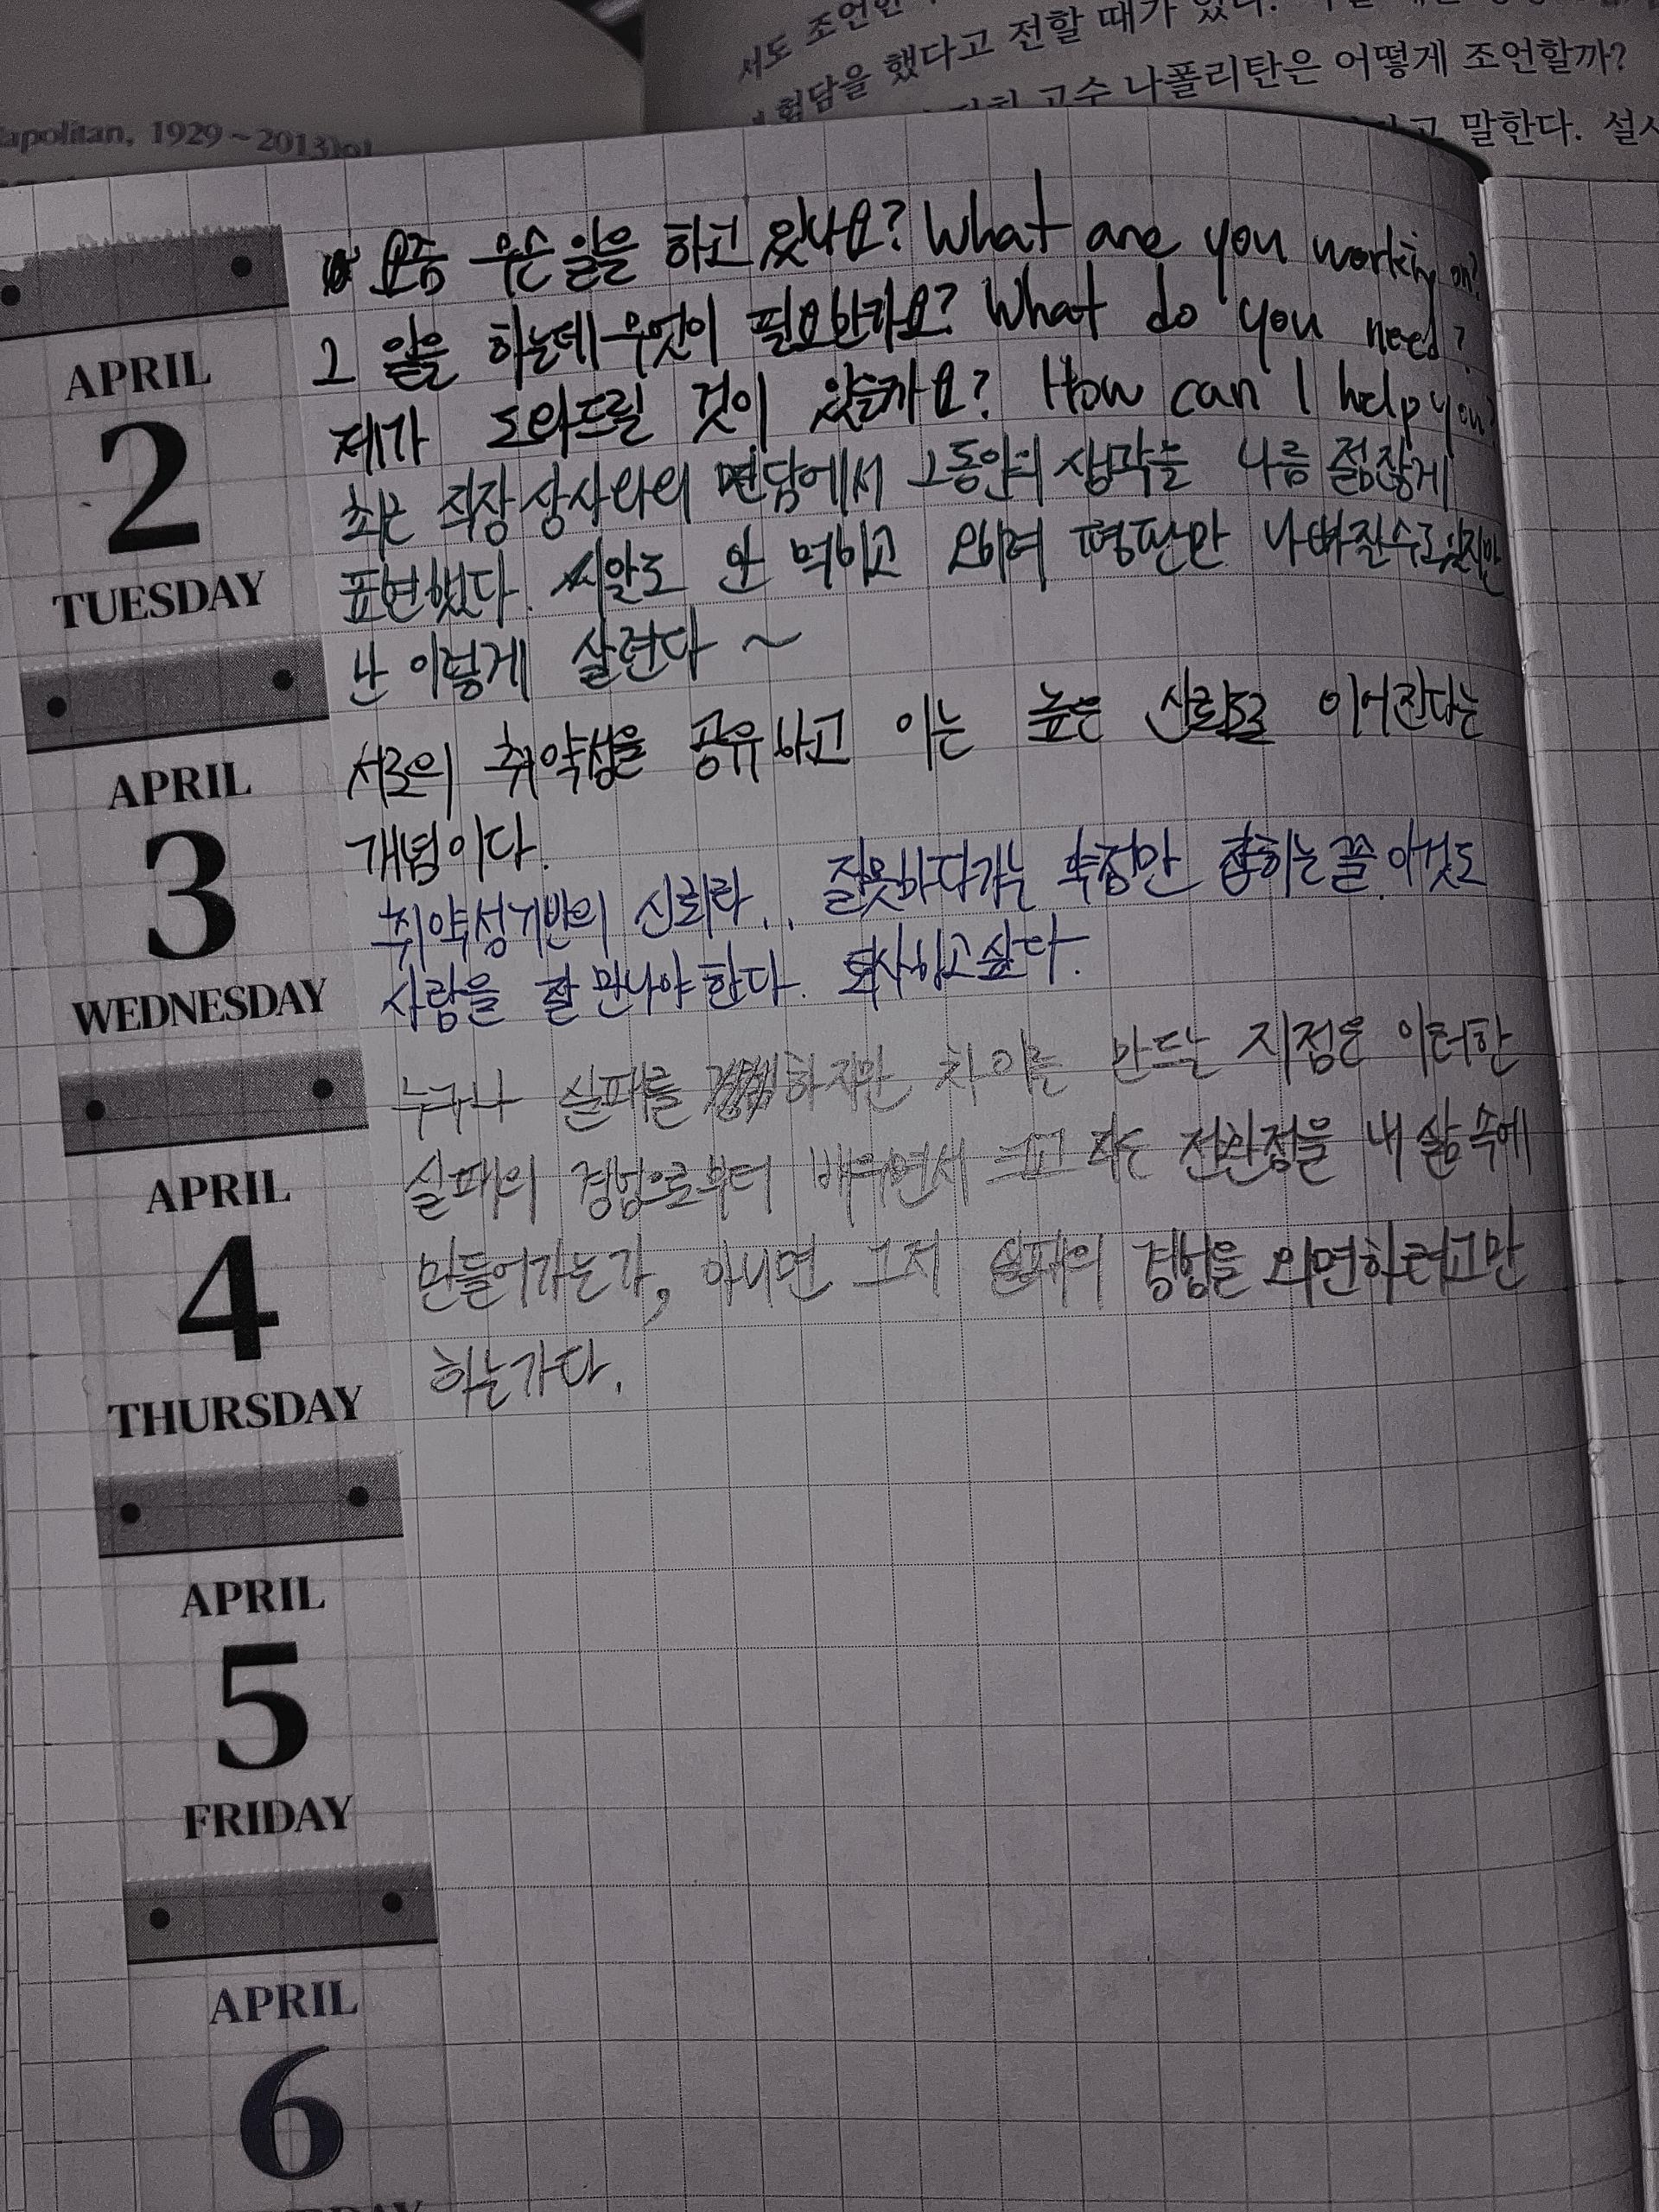 서도 조언
험담을 했다고 전할 때가 있다.
고수 나폴리탄은 어떻게 조언할까?
고 말한다. 설사
apolitan, 1929~2013)이
요즘 무슨 일을 하고 있나요? What are you working on?
그 일을 하는데 무엇이 필요한가요? What do you need?
제가 도와드릴 것이 있을까요? How can I help you?
최근 직장 상사와의 면담에서 그동안의 생각을 나름 점잖게
표현했다. 씨알도 안 먹히고 오히려 평판만 나빠질수도있지만
난 이렇게 살련다 ~
서로의 취약성을 공유하고 이는 높은 신뢰로 이어진다는
개념이다.
취약성기반의 신뢰라... 잘못하다가는 약점만 잡히는꼴. 이것도
사람을 잘 만나야한다. 퇴사하고싶다.
누구나 실패를 경험하지만 차이를 만드는 지점은 이러한
실패의 경험으로부터 배우면서 크고 작은 전환점을 내 삶 속에
만들어가는가, 아니면 그저 실패의 경험을 외면하려고만
하는가다.
APRIL
2
TUESDAY
APRIL
3
WEDNESDAY
APRIL
4
THURSDAY
APRIL
5
FRIDAY
APRIL
6